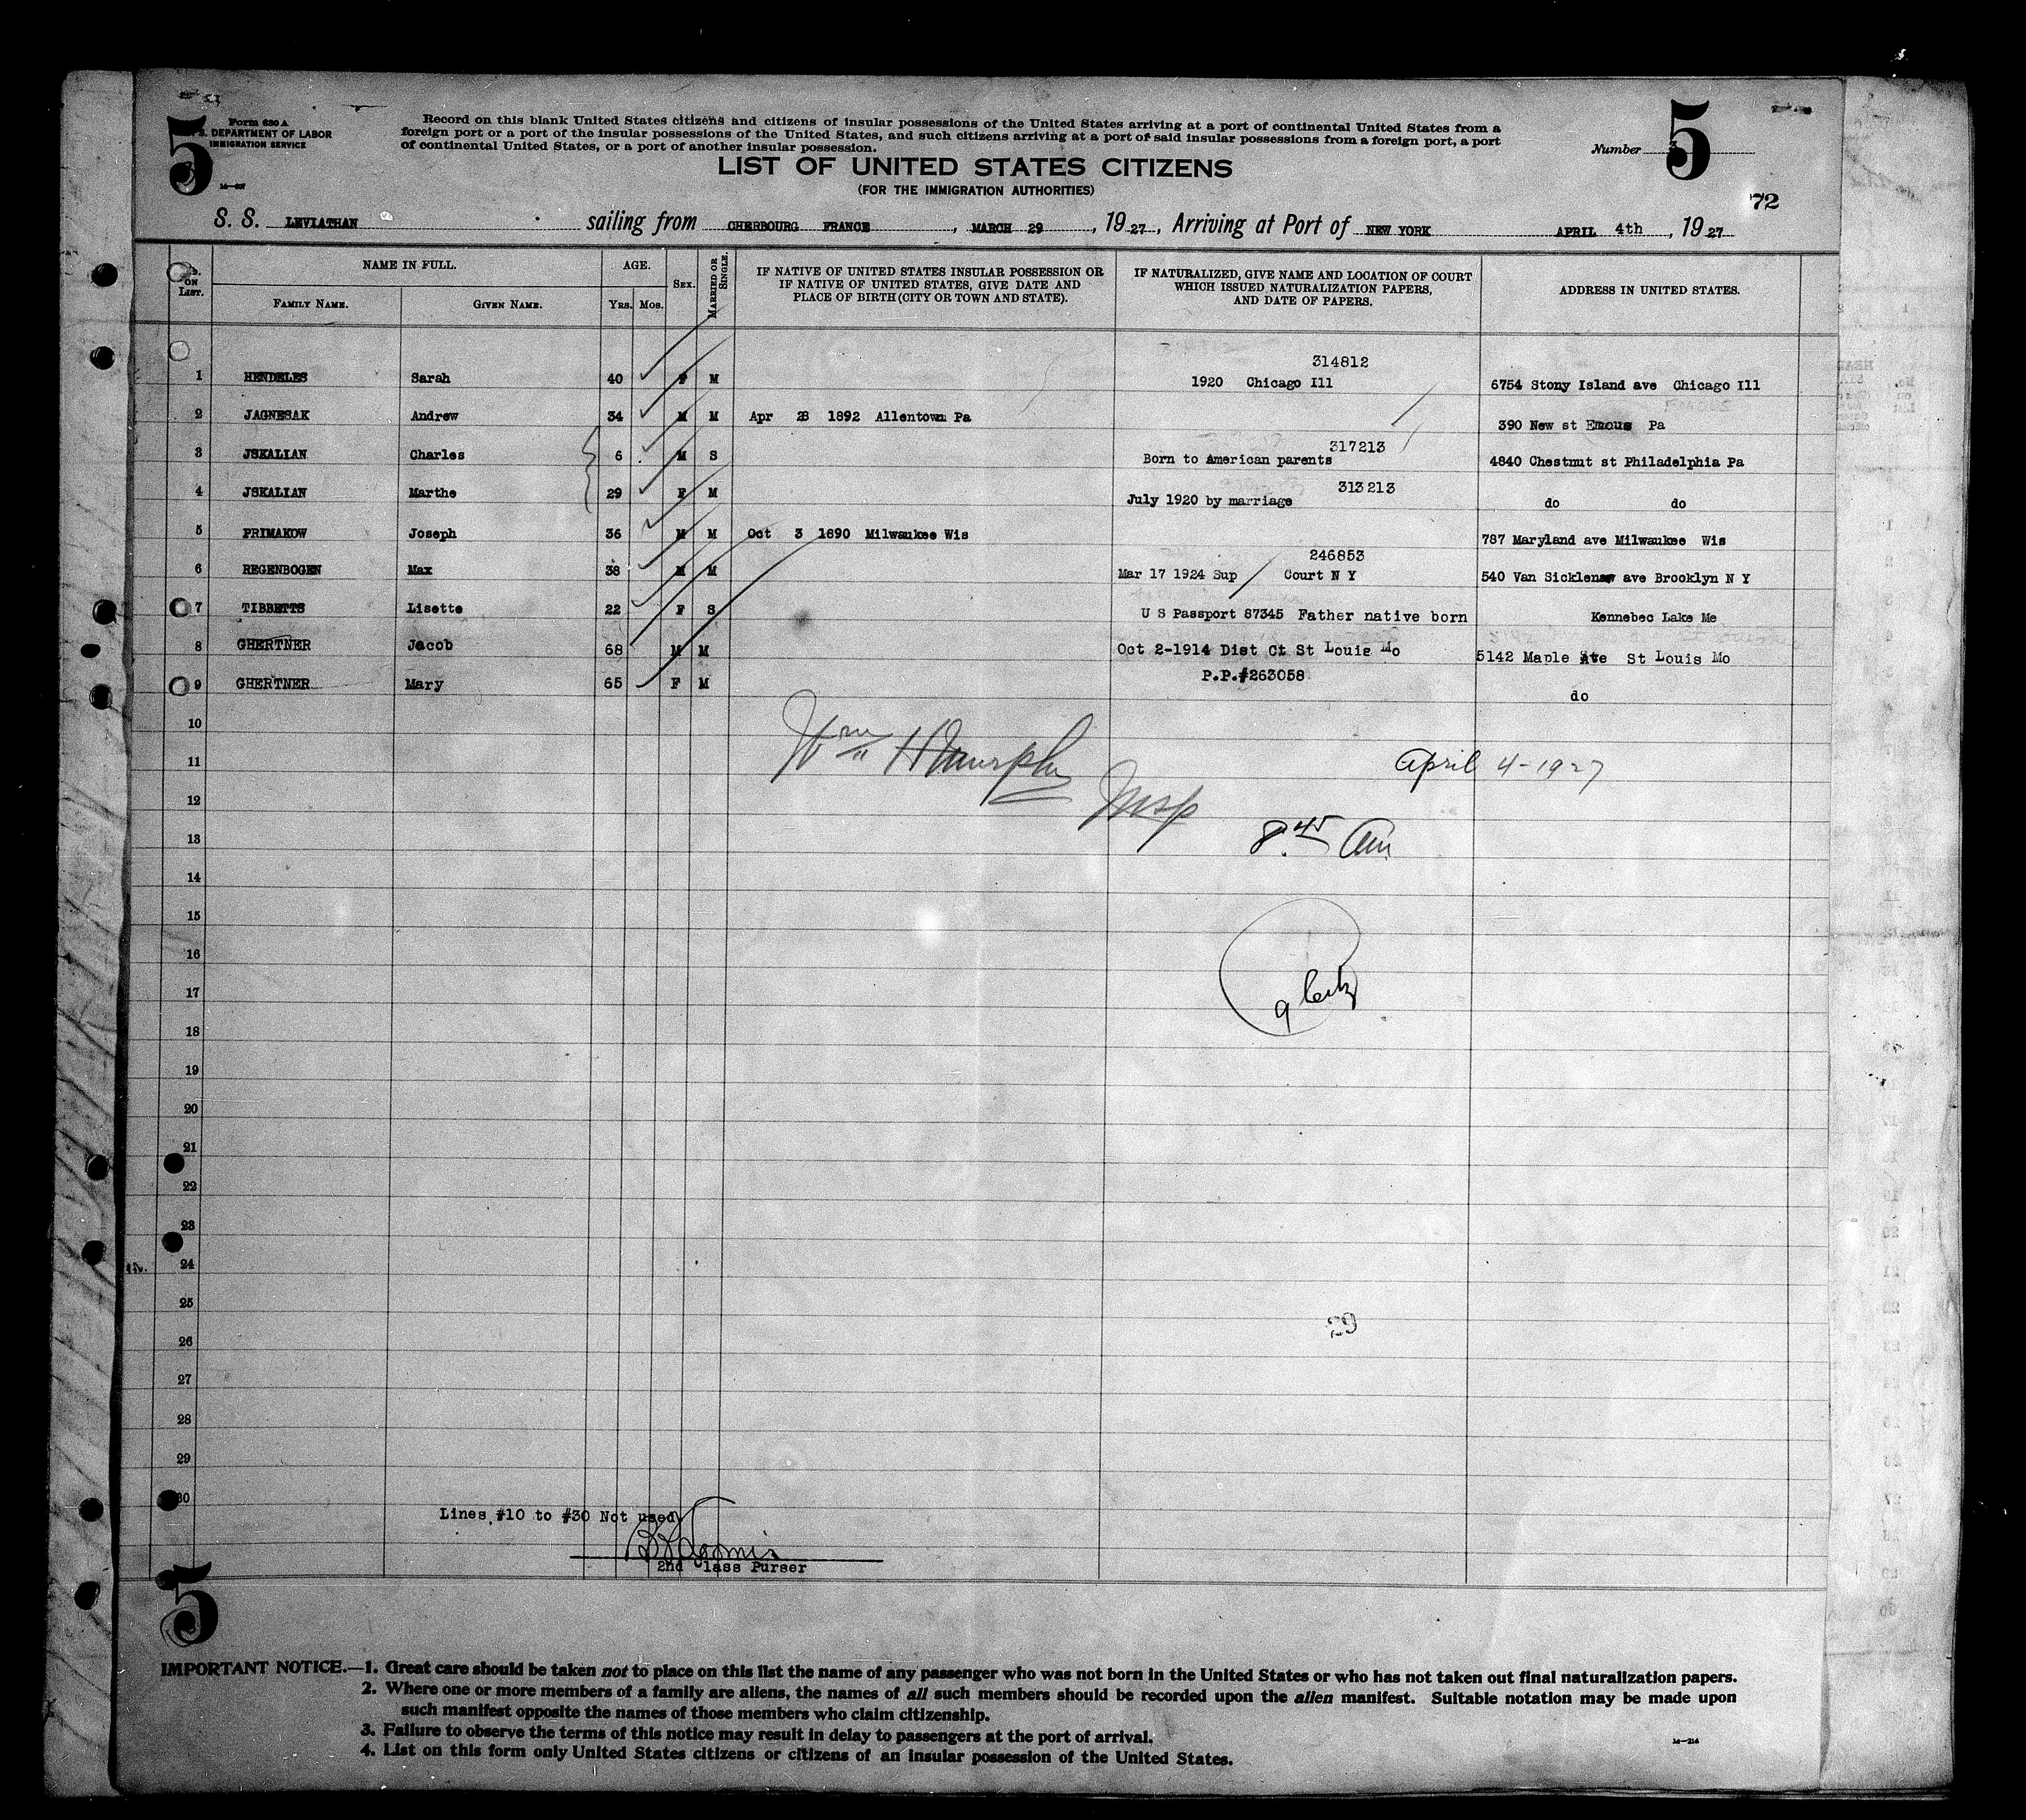 5
5
Form 630 A
U. S. DEPARTMENT OF LABOR
IMMIGRATION SERVICE
Record on this blank United States citizens and citizens of insular possessions of the United States arriving at a port of continental United States from a
foreign port or a port of the insular possessions of the United States, and such citizens arriving at a port of said insular possessions from a foreign port, a port
of continental United States, or a port of another insular possession.
LIST OF UNITED STATES CITIZENS
(FOR THE IMMIGRATION AUTHORITIES)
Number
72
S. S. LEVIATHAN sailing from CHERBOURG FRANCE, MARCH 29, 1927, Arriving at Port of NEW YORK APRIL 4th, 1927
No. ON LIST. NAME IN FULL. AGE. SEX. MARRIED OR SINGLE. IF NATIVE OF UNITED STATES INSULAR POSSESSION OR IF NATIVE OF UNITED STATES, GIVE DATE AND PLACE OF BIRTH (CITY OR TOWN AND STATE). IF NATURALIZED, GIVE NAME AND LOCATION OF COURT WHICH ISSUED NATURALIZATION PAPERS, AND DATE OF PAPERS. ADDRESS IN UNITED STATES.
FAMILY NAME. GIVEN NAME. YRS. MOS.
314812
1 HENDELES Sarah 40 F M 1920 Chicago Ill 6754 Stony Island ave Chicago Ill
2 JAGNESAK Andrew 34 M M Apr 28 1892 Allentown Pa 390 New st Emous Pa
317213
3 JSKALIAN Charles 6 M S Born to American parents 4840 Chestnut st Philadelphia Pa
313213
4 JSKALIAN Marthe 29 F M July 1920 by marriage do do
5 PRIMAKOW Joseph 36 M M Oct 3 1890 Milwaukee Wis 787 Maryland ave Milwaukee Wis
246853
6 REGENBOGEN Max 38 M M Mar 17 1924 Sup Court N Y 540 Van Sicklen ave Brooklyn N Y
7 TIBBETTS Lisette 22 F S U S Passport 87345 Father native born Kennebec Lake Me
8 GHERTNER Jacob 68 M M Oct 2-1914 Dist Ct St Louis Mo 5142 Maple Ave St Louis Mo
P.P.#263058
9 GHERTNER Mary 65 F M do
10
Wm H Murphy
11 April 4-1927
12 Insp
13 8.45 Am
14
15
16
17
18
19
20
21
22
23
24
25
29
26
27
28
29
30
Lines #10 to #30 Not used
2nd Class Purser
5
IMPORTANT NOTICE.—1. Great care should be taken not to place on this list the name of any passenger who was not born in the United States or who has not taken out final naturalization papers.
2. Where one or more members of a family are aliens, the names of all such members should be recorded upon the alien manifest. Suitable notation may be made upon
such manifest opposite the names of those members who claim citizenship.
3. Failure to observe the terms of this notice may result in delay to passengers at the port of arrival.
4. List on this form only United States citizens or citizens of an insular possession of the United States.
14—214